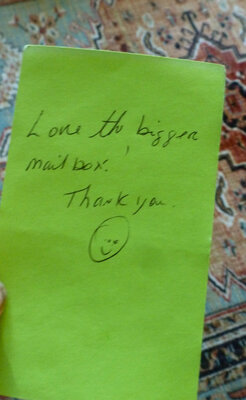 Love the bigger
mail box!
Thank you.